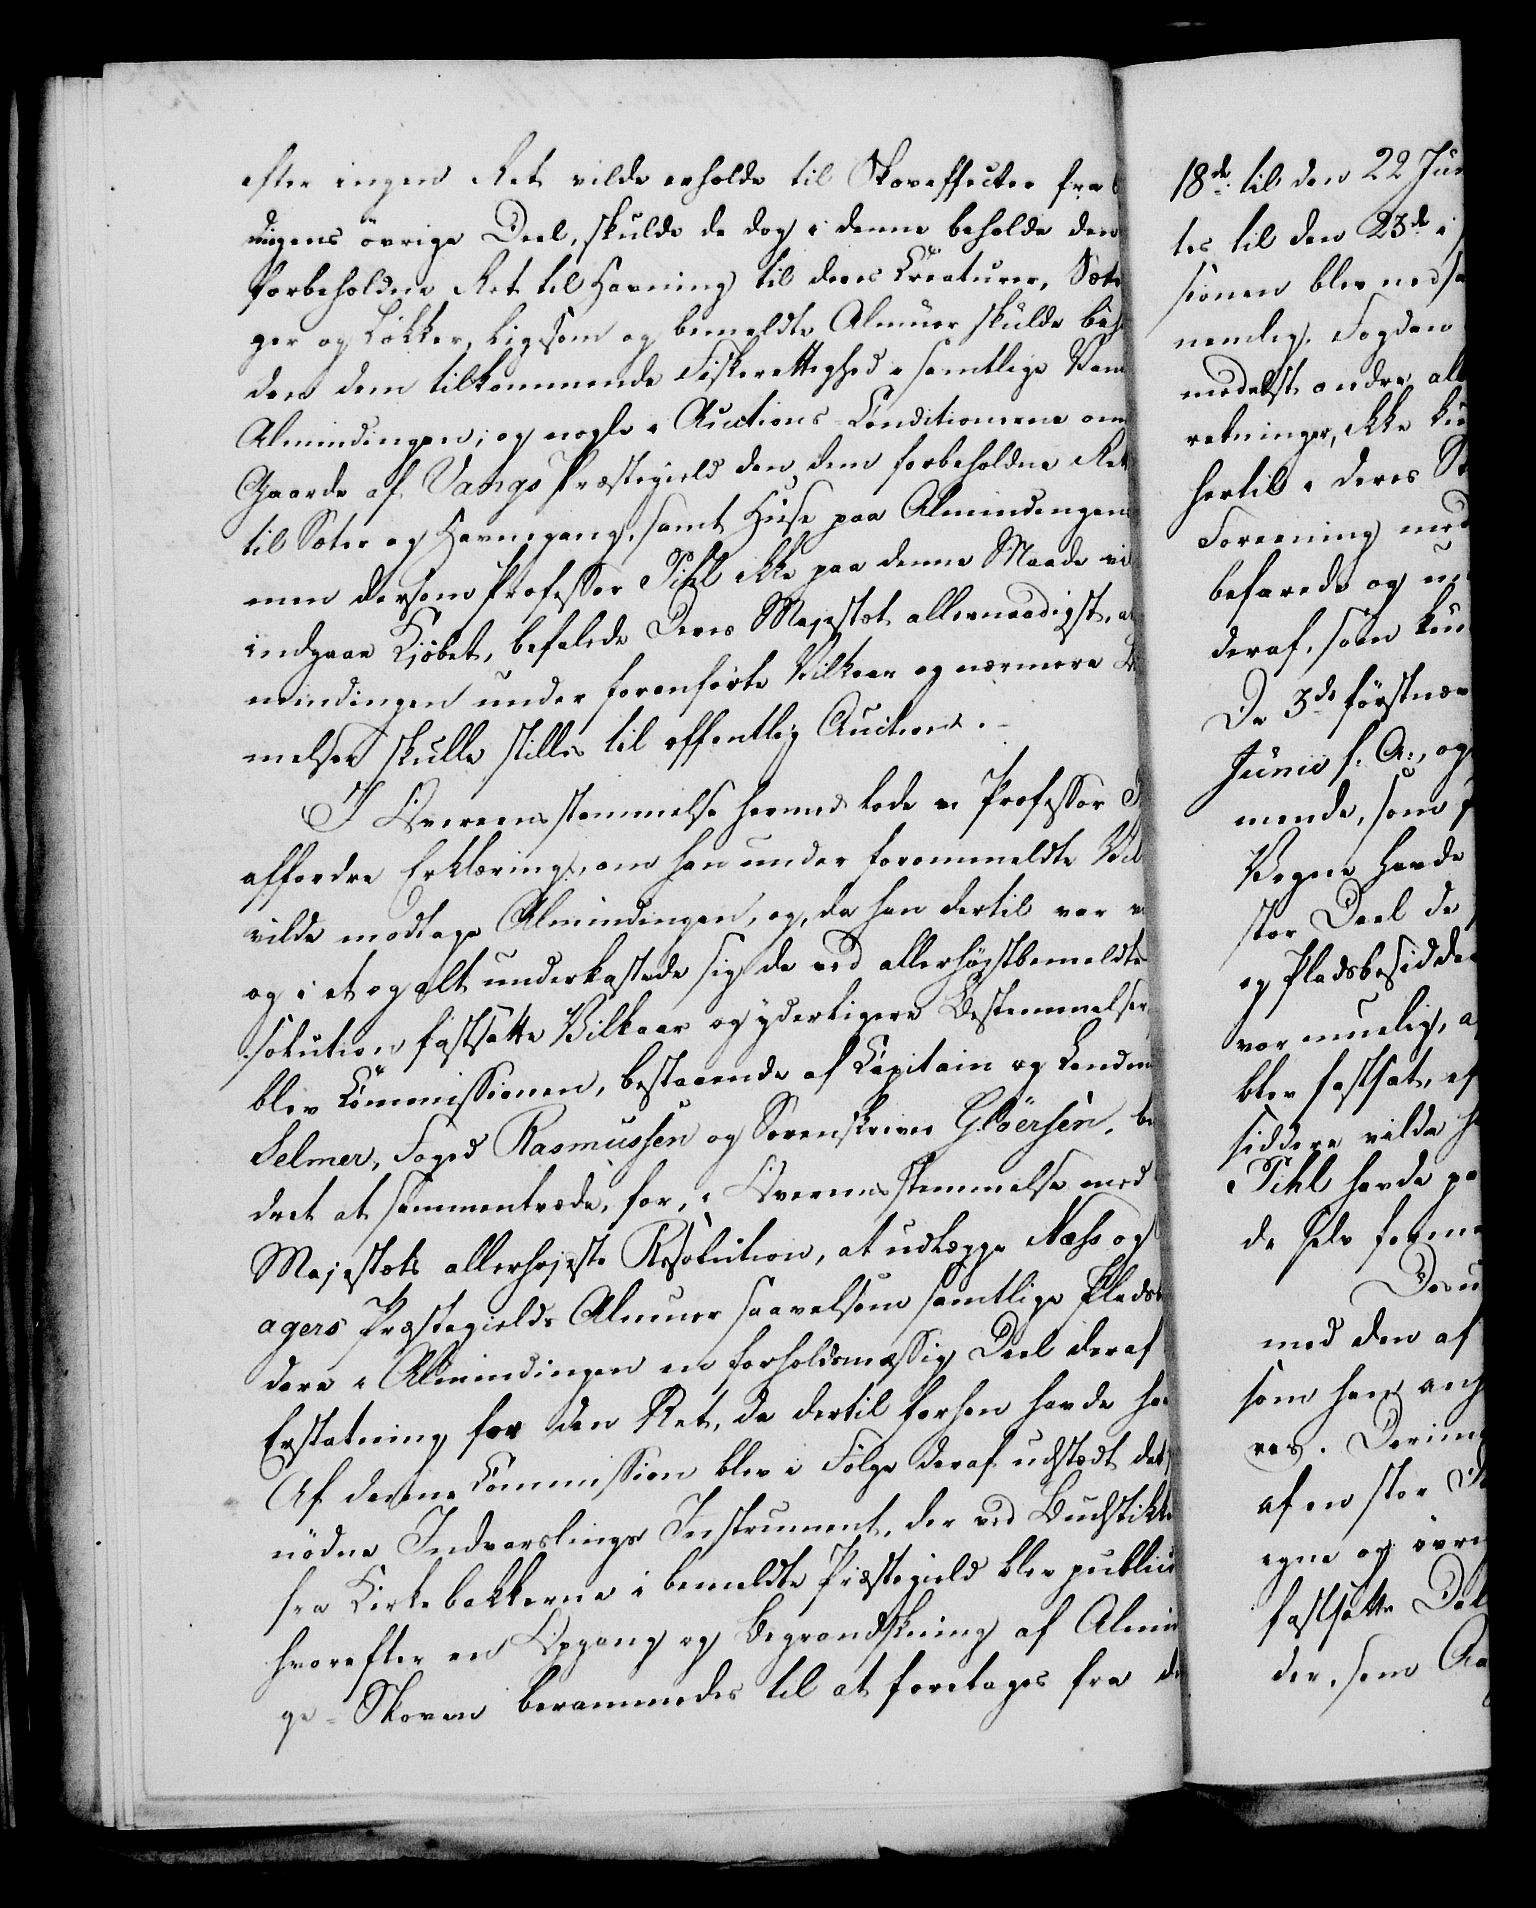 efter ingen Ret vilde erholde til Skoveffecter fra
ningens övrige Deel, skulde de dog i denne beholde den
forbeholdne Ret til Havning til deres Creaturer, Sæte
ger og Løkker, ligesom og bemeldte Almuer skulde beh
den dem tilkommende Fiskerettighed i samtlige Van
Almindingen; og nogle i Auctions-Conditionerne om
Gaarde af Vangs Præstegield den dem forbeholdne Ret
til Sæter og Havnegang, samt Huse paa Almindingen
men dersom Professor Pihl ikke paa denne Maade vi
indgaae Kjöbet, befalede Deres Majestæt allernaadigst, a
mindingen under foranførte Vilkaar og nærmere B
melser skulle stilles til offentlig Auction.
I Overeensstemmelse hermed lode vi Professor P
affordre Erklæring, om han under forommeldte Vil
vilde modtage Almindingen, og, da han dertil var v
og i et og alt underkastede sig de ved allerhögstbemeldte
solution fastsatte Vilkaar og yderligere Bestemmelser,
blev Commissionen, bestaaende af Capitain og Lendm
Selmer, Foged Rasmussen og Sorenskriver Glöersen, be
dret at sammentræde, for, i Overeensstemmelse med
Majestæts allerhöjeste Resolution, at udlægge Næss og
agers Præstegields Almuer saavelsom samtlige Pladsb
dere i Almindingen en forholdsmæssig Deel deraf
Erstatning for den Ret, de dertil forhen havde ha
Af denne Commission blev i Fölge deraf udstædt det
nödne Indvarslings Instrument, der ved Budstikke
fra Kirkebakkerne i bemeldte Præstegield blev public
hvorefter en Opgang og Begrandskning af Almin
ge-Skoven berammedes til at foretages fra d
18de til den 22 Jun
tes til den 23de i
sionen blev nedsa
nemlig. Fogden
medelst andre all
retninger, ikke ku
hertil i deres St
Forening med
befarede og u
deraf, som kun
De 3de förstnæv
Junii s. A., og
mende, som
Vegne havde
stor Deel de
og Pladsbesidde
var muelig, a
blev fastsat, ef
siddere vilde h
Pihl havde pa
de selv forme
Desu
med den af
som han anh
res. Derim
af en stor
egne og övri
fastsatte Del
der, som Aa